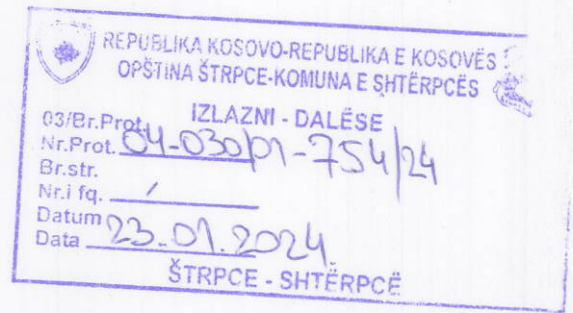 REPUBLIKA KOSOVO-REPUBLIKA E KOSOVËS
OPŠTINA ŠTRPCE-KOMUNA E SHTËRPCËS
IZLAZNI - DALËSE
03/Br.Prot.
Nr.Prot. 04-030/01-754/24
Br.str.
Nr.i fq. /
Datum
Data 23.01.2024
ŠTRPCE - SHTËRPCË